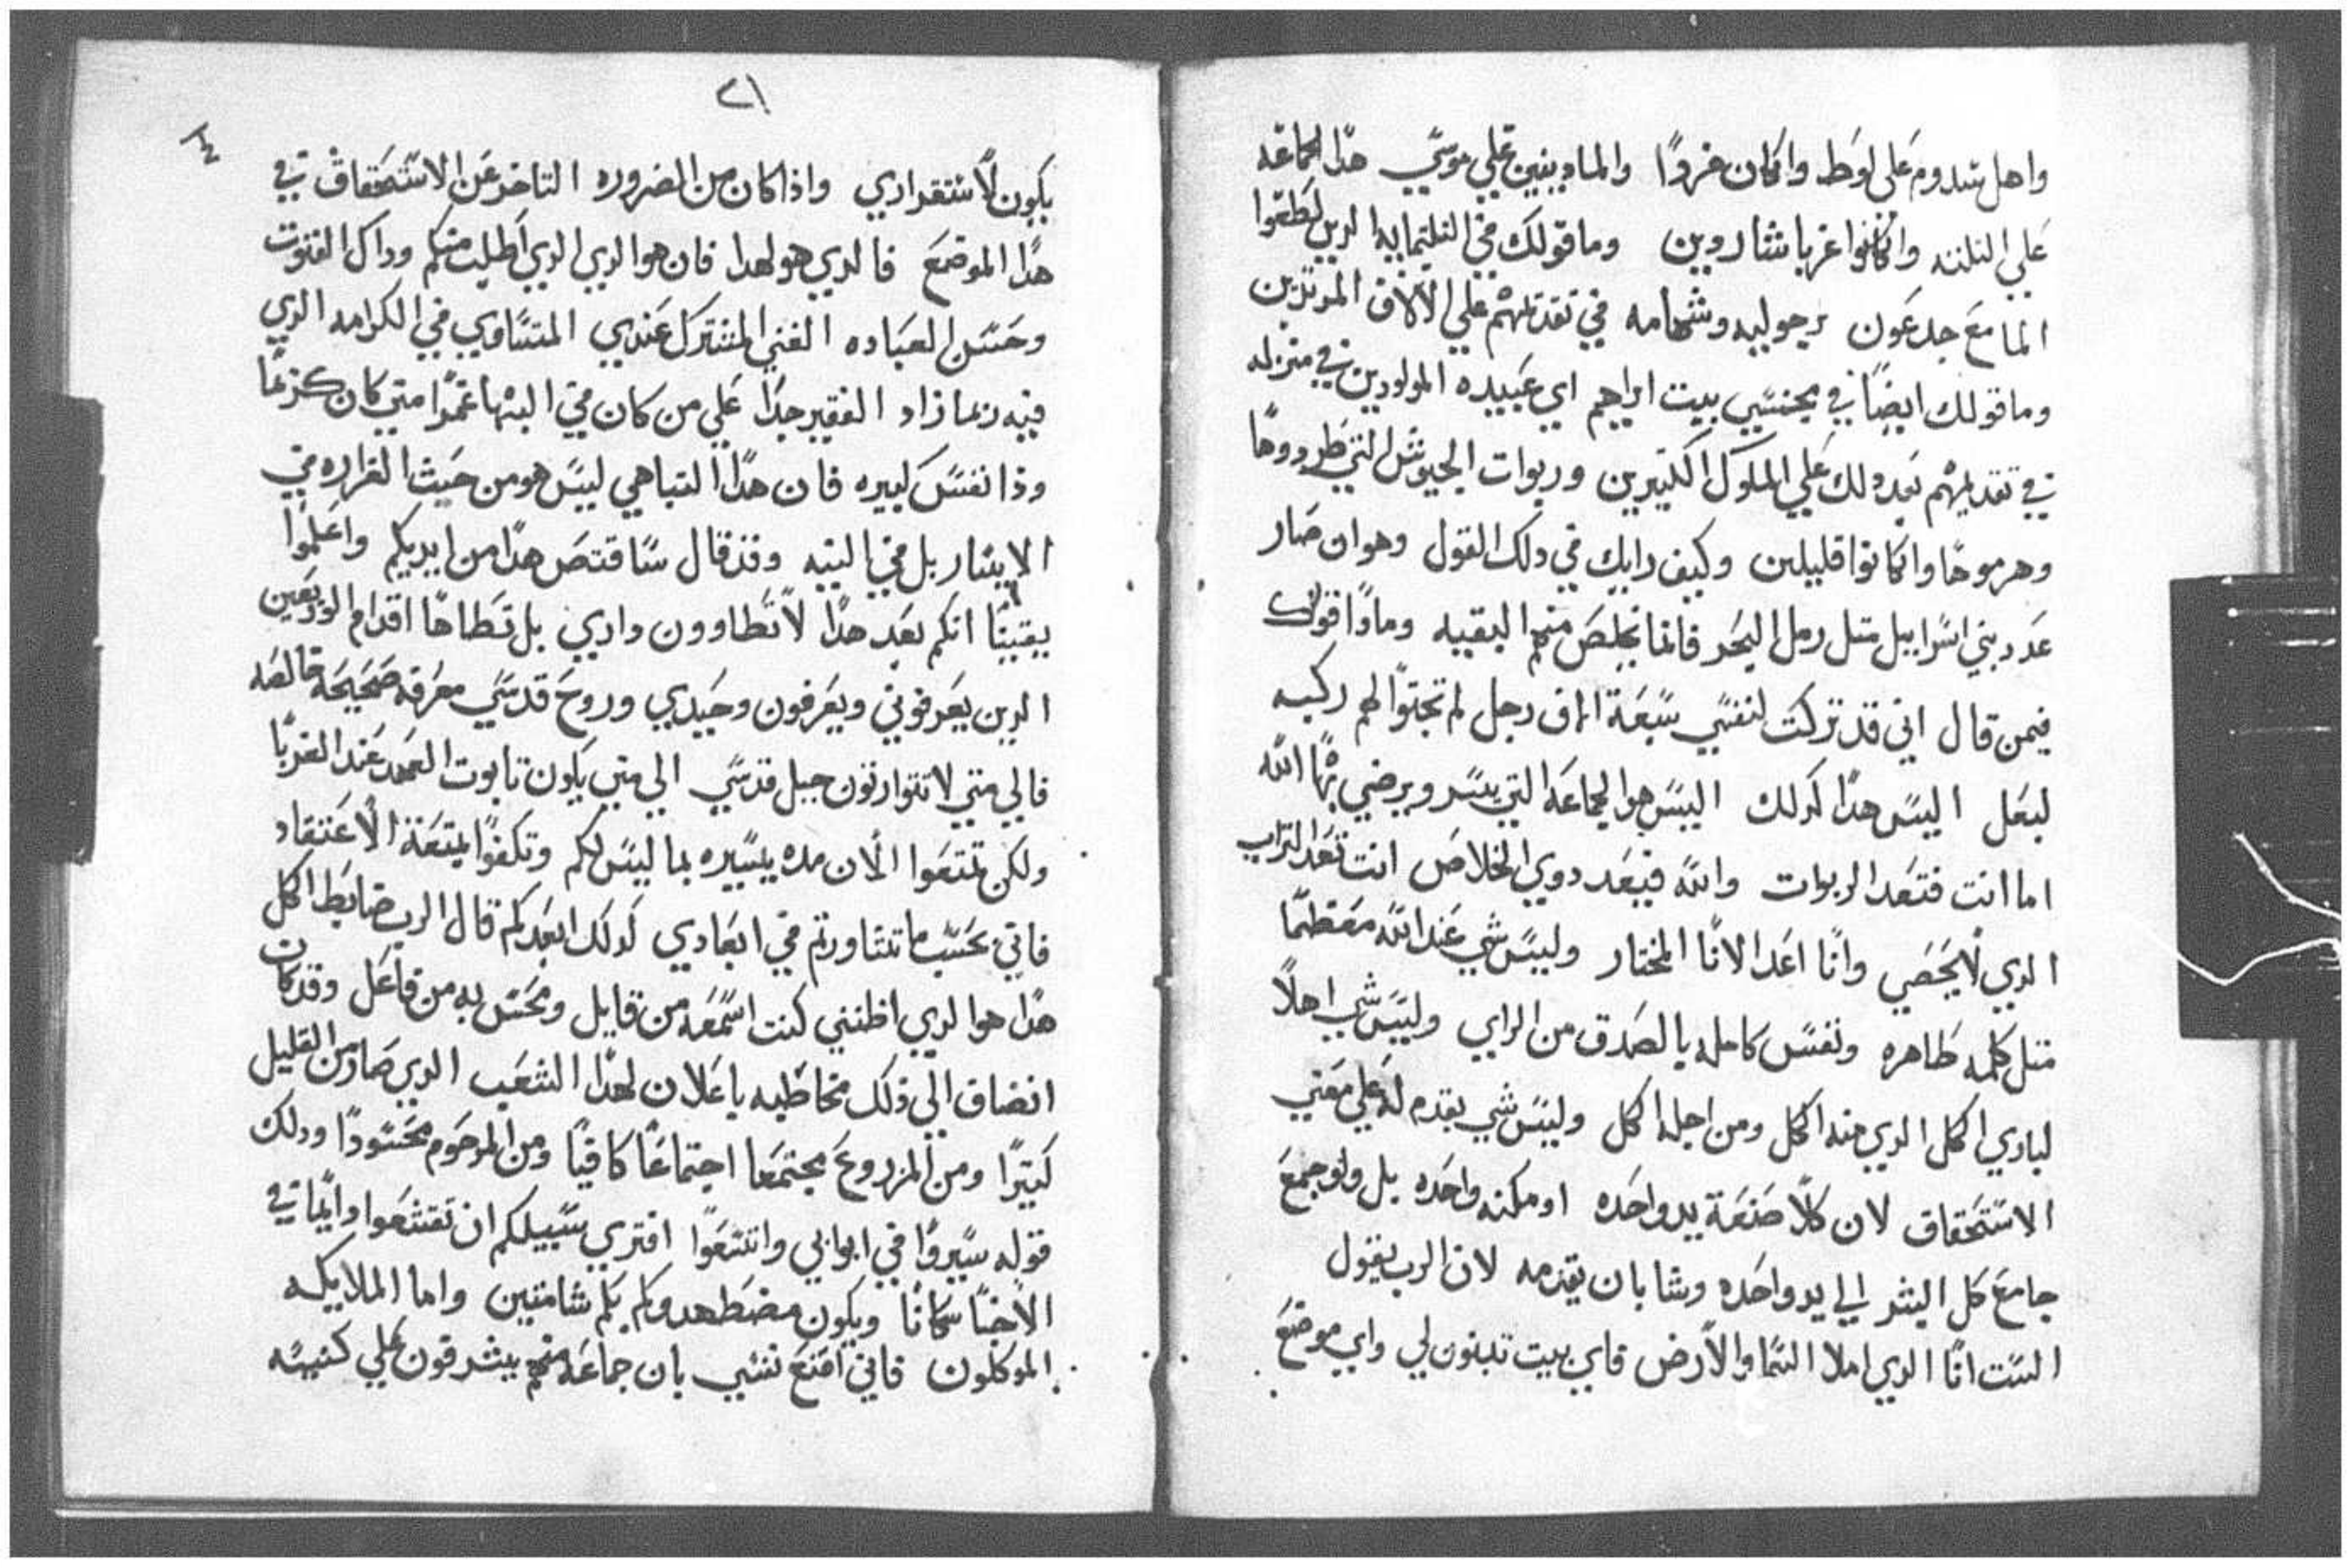 واهل سدوم على لوط وان كان مفردًا والماديينين علي موسي هدا الجماعه
علي التلتته وان كانوا غربا شاروبين وما قولك في التلتمايه الدين لطعوا
الما مع جدعون برجوليه وشهامه في تقدمتهم علي الالاف المرتدين
وما قولك ايضًا في محنسي بيت ابراهيم اي عبيده المولودين في منزله
في تقديمهم بعد دلك علي الملوك الكتيرين وربوات الجيوش التي طردوها
وهزموها وان كانوا قليلين وكيف رايك في دلك القول وهو ان صار
عدد بني اسراييل متل رمل البحر فانما يخلص منهم البقيه ومادا قولك
فيمن قال اني قد تركت لنفسي سبعة الاف رجل لم تجتوا لهم ركبه
لبعل اليس هدا كدلك اليس هو الجماعه التي يسر ويرضي بها الله
اما انت فتعد الربوات والله فيعد دوي الخلاص انت تعد التراب
الدي لا يحصي وانا اعد الانا المختار وليس شي عند الله معظمًا
متل كلمه طاهره ونفس كامله بالصدق من الراي وليس شي اهلًا
لباري الكل الدي منه الكل ومن اجله الكل وليس شي يقدم له علي معني
الاستحقاق لان كلًا صنعة يد واحده او مكنه واحده بل ولو جمع
جامع كل البشر الي يد واحده وشا بان يقدمه لان الرب يقول
الست انا الدي املا السما والارض فاي بيت تبنون لي واي موضع
٢١
يكون لاستقراري واذا كان من الضروره التاخر عن الاستحقاق في
هدا الموضع فالدي هو لهدا فان هو الدي الدي اطلب منكم وداك القنوت
وحسن العباده الغني المشترك عندي المتساوي في الكرامه الدي
فيه ربما زاد الفقير جدًا علي من كان في البها عمدًا متي كان كريمًا
وذا نفس كبيره فان هدا التباهي ليس هو من حيث الغزاره في
الايثار بل في النيه وقد قال ساقتص هدا من ايديكم واعلموا
يقينًا انكم بعد هدا لا تطاوون داري بل تطاها اقدام الوديعين
الدين يعرفوني ويعرفون وحيدي وروح قدسي معرفه صحيحه خالصه
فالي متي لا تتوارتون جبل قدسي الي متي يكون تابوت العهد عند الغربا
ولكن تمتعوا الان مده يسيره بما ليس لكم وتكفوا بمتعة الاعتقاد
فاني بحسب ما تشاورتم في ابعادي كدلك ابعدكم قال الرب ضابط الكل
هدا هو الدي اظنني كنت اسمعه من قايل ومحس به من فاعل وقد كان
انضاف الي ذلك مخاطبه باعلان لهدا الشعب الدي صار من القليل
كتيرًا ومن المزروع مجتمعا اجتماعًا كافيًا ومن المرحوم محسودًا ودلك
قوله سيروا في ابوابي واتسعوا افتري سبيلكم ان تقشعوا دايمًا في
الاخبا سكانًا ويكون مضطهدوكم بكم شامتين واما الملايكه
الموكلون فاني اقنع نفسي بان جماعه منهم يشرفون علي كنيسه